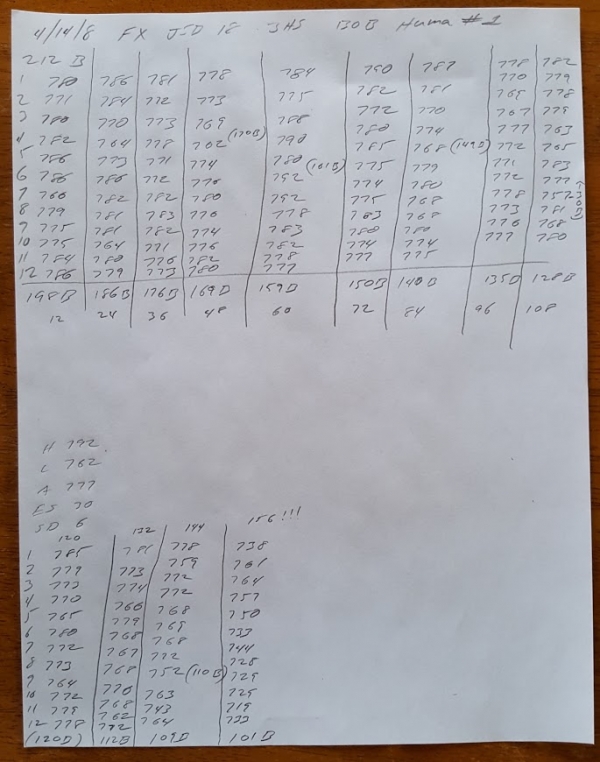 4/14/8 FX JSD 18 3HS 130B Huma #1
212 B
1 780 786 781 778 784 790 787 778 782
2 771 784 772 773 775 782 781 770 779
3 780 770 773 769 788 772 770 765 778
4 782 764 778 762 (170B) 790 780 774 767 779
5 786 773 771 774 780 (161B) 785 768 (149D) 777 763
6 786 786 772 770 792 775 779 772 765
7 766 782 782 780 792 774 780 771 783
8 779 781 783 770 778 775 768 772 777
9 775 781 782 774 783 783 768 778 757
10 775 764 771 776 782 780 780 773 781
11 784 780 776 782 778 774 774 776 768
12 786 779 773 780 777 777 775 777 780
198B 186B 176B 169D 159D 150B 140B 135D 128B
12 24 36 48 60 72 84 96 108
H 792
L 762
A 777
ES 30
SD 6
120 132 144 156!!!
1 785 781 778 738
2 779 773 759 761
3 773 774 772 764
4 770 766 772 757
5 765 779 768 750
6 780 768 765 733
7 772 767 768 744
8 773 768 772 728
9 764 770 752 (110B) 729
10 772 768 763 725
11 779 762 743 719
12 778 772 764 733
(120D) 112B 109D 101B